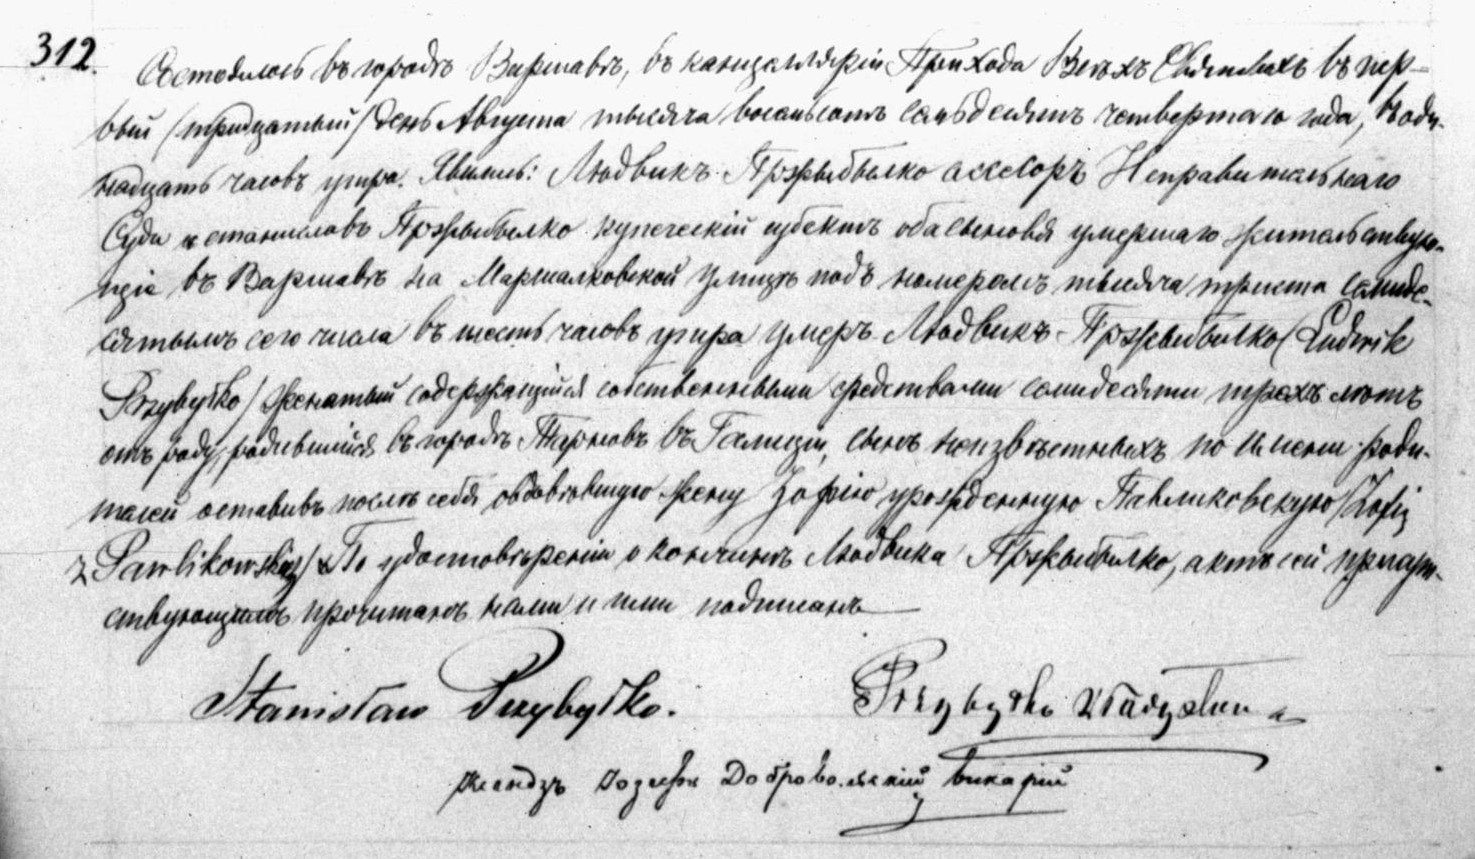 312.
Состоялось въ городѣ Варшавѣ, въ канцелляріи Прихода Всѣхъ Святыхъ въ пер-
вый (тридцатый) день Августа тысяча восемьсотъ семьдесятъ четвертаго года, въ оди-
надцать часовъ утра. Явились: Людвикъ Пржибылко ассесоръ Исправительнаго
Суда и Станиславъ Пржибылко купеческій субектъ оба сыновья умершаго жительствую-
щіе въ Варшавѣ на Маршалковской улицѣ подъ номеромъ тысяча триста семиде-
сятымъ сего числа въ шесть часовъ утра умеръ Людвикъ Пржибылко (Ludwik
Przybyłko) женатый содержащійся собственными средствами семидесяти трехъ лѣтъ
отъ роду, родившійся въ городѣ Тарновъ въ Галиціи, сынъ неизвѣстныхъ по имени роди-
телей оставивъ послѣ себя овдовѣвшую жену Зофію урожденную Павликовскую (Zofią
z Pawlikowskich) По удостовѣреніи о кончинѣ Людвика Пржибылко, актъ сей присут-
ствующимъ прочитанъ нами и ими подписанъ
Stanisław Przybyłko. Przybyłko
Ксендзъ Іозефъ Добровольскій викарій